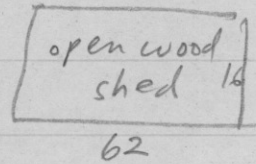 open wood
shed 16
62